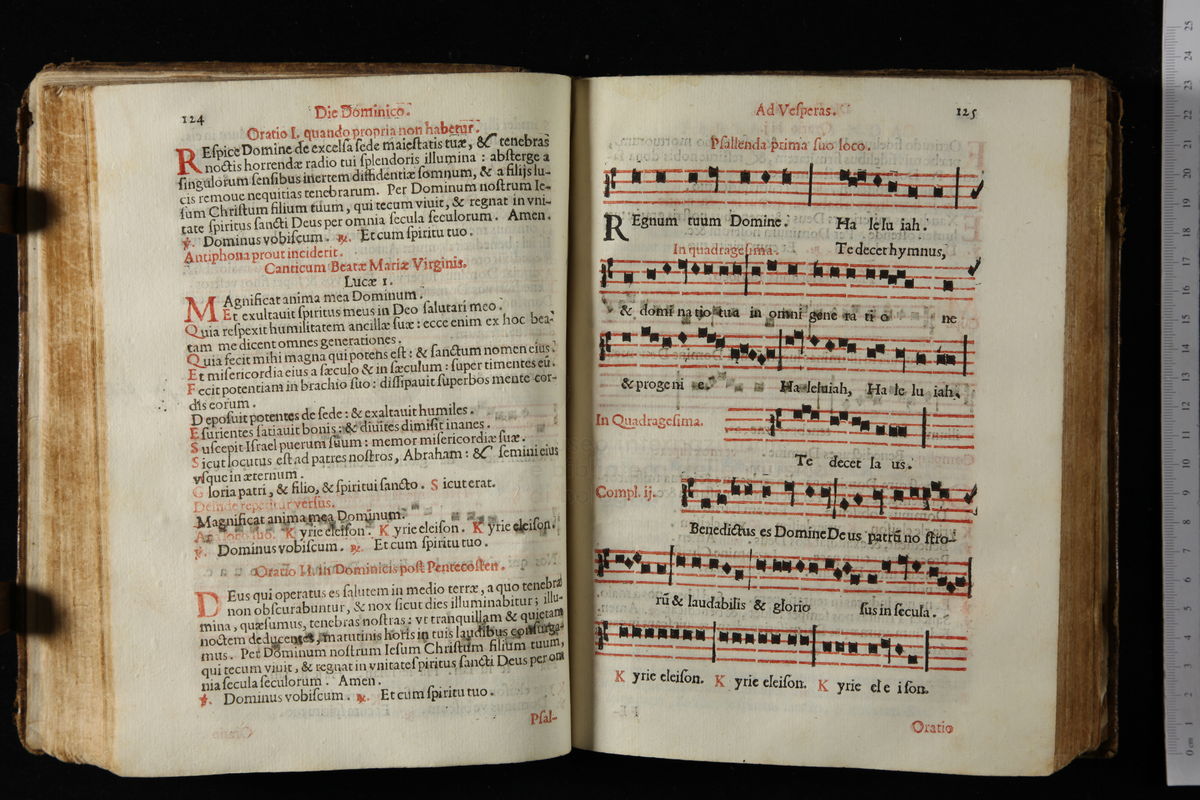 124
Die Dominico.
Oratio I. quando propria non habetur.
REſpice Domine de excelſa ſede maieſtatis tuæ, & tenebras
noctis horrendæ radio tui ſplendoris illumina : abſterge a
ſingulorum ſenſibus inertem diffidentiæ ſomnum, & a filijs lu-
cis remoue nequitias tenebrarum. Per Dominum noſtrum Ie-
ſum Chriſtum filium tuum, qui tecum viuit, & regnat in vni-
tate ſpiritus ſancti Deus per omnia ſecula ſeculorum. Amen.
℣. Dominus vobiſcum. ℟. Et cum ſpiritu tuo.
Antiphona prout inciderit.
Canticum Beatæ Mariæ Virginis.
Lucæ 1.
MAgnificat anima mea Dominum.
Et exultauit ſpiritus meus in Deo ſalutari meo.
Quia reſpexit humilitatem ancillæ ſuæ : ecce enim ex hoc bea-
tam me dicent omnes generationes.
Quia fecit mihi magna qui potens eſt : & ſanctum nomen eius.
Et miſericordia eius a ſæculo & in ſæculum : ſuper timentes eũ.
Fecit potentiam in brachio ſuo : diſſipauit ſuperbos mente cor-
dis eorum.
Depoſuit potentes de ſede : & exaltauit humiles.
Eſurientes ſatiauit bonis : & diuites dimiſit inanes.
Suſcepit Iſrael puerum ſuum : memor miſericordiæ ſuæ.
Sicut locutus eſt ad patres noſtros, Abraham : & ſemini eius
vſque in æternum.
Gloria patri, & filio, & ſpiritui ſancto. Sicut erat.
Deinde repetitur verſus.
Magnificat anima mea Dominum.
ſuo. Kyrie eleiſon. Kyrie eleiſon. Kyrie eleiſon.
℣. Dominus vobiſcum. ℟. Et cum ſpiritu tuo.
Oratio II. in Dominicis poſt Pentecoſten.
DEus qui operatus es ſalutem in medio terræ, a quo tenebræ
non obſcurabuntur, & nox ſicut dies illuminabitur ; illu-
mina, quæſumus, tenebras noſtras : vt tranquillam & quietam
noctem deducentes, matutinis horis in tuis laudibus conſurga-
mus. Per Dominum noſtrum Ieſum Chriſtum filium tuum,
qui tecum viuit, & regnat in vnitate ſpiritus ſancti Deus per om
nia ſecula ſeculorum. Amen.
℣. Dominus vobiſcum. ℟. Et cum ſpiritu tuo.
Pſal-
Ad Veſperas.
125
Pſallenda prima ſuo loco.
REgnum tuum Domine. Ha le lu iah.
In quadrageſima. Te decet hymnus,
& domi na tio tua in omni gene ra ti o ne
& proge ni e. Ha leluiah, Ha le lu iah.
In Quadrageſima.
Te decet la us.
Compl. ij.
Benedictus es Domine De us patrũ no ſtro-
rũ & laudabilis & glorio ſus in ſecula.
Kyrie eleiſon. Kyrie eleiſon. Kyrie ele iſon.
Oratio
0 cm 1 2 3 4 5 6 7 8 9 10 11 12 13 14 15 16 17 18 19 20 21 22 23 24 25